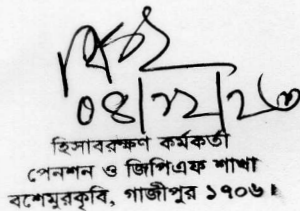 ০৪/১২/২৩
হিসাবরক্ষণ কর্মকর্তা
পেনশন ও জিপিএফ শাখা
বশেমুরকৃবি, গাজীপুর ১৭০৬।